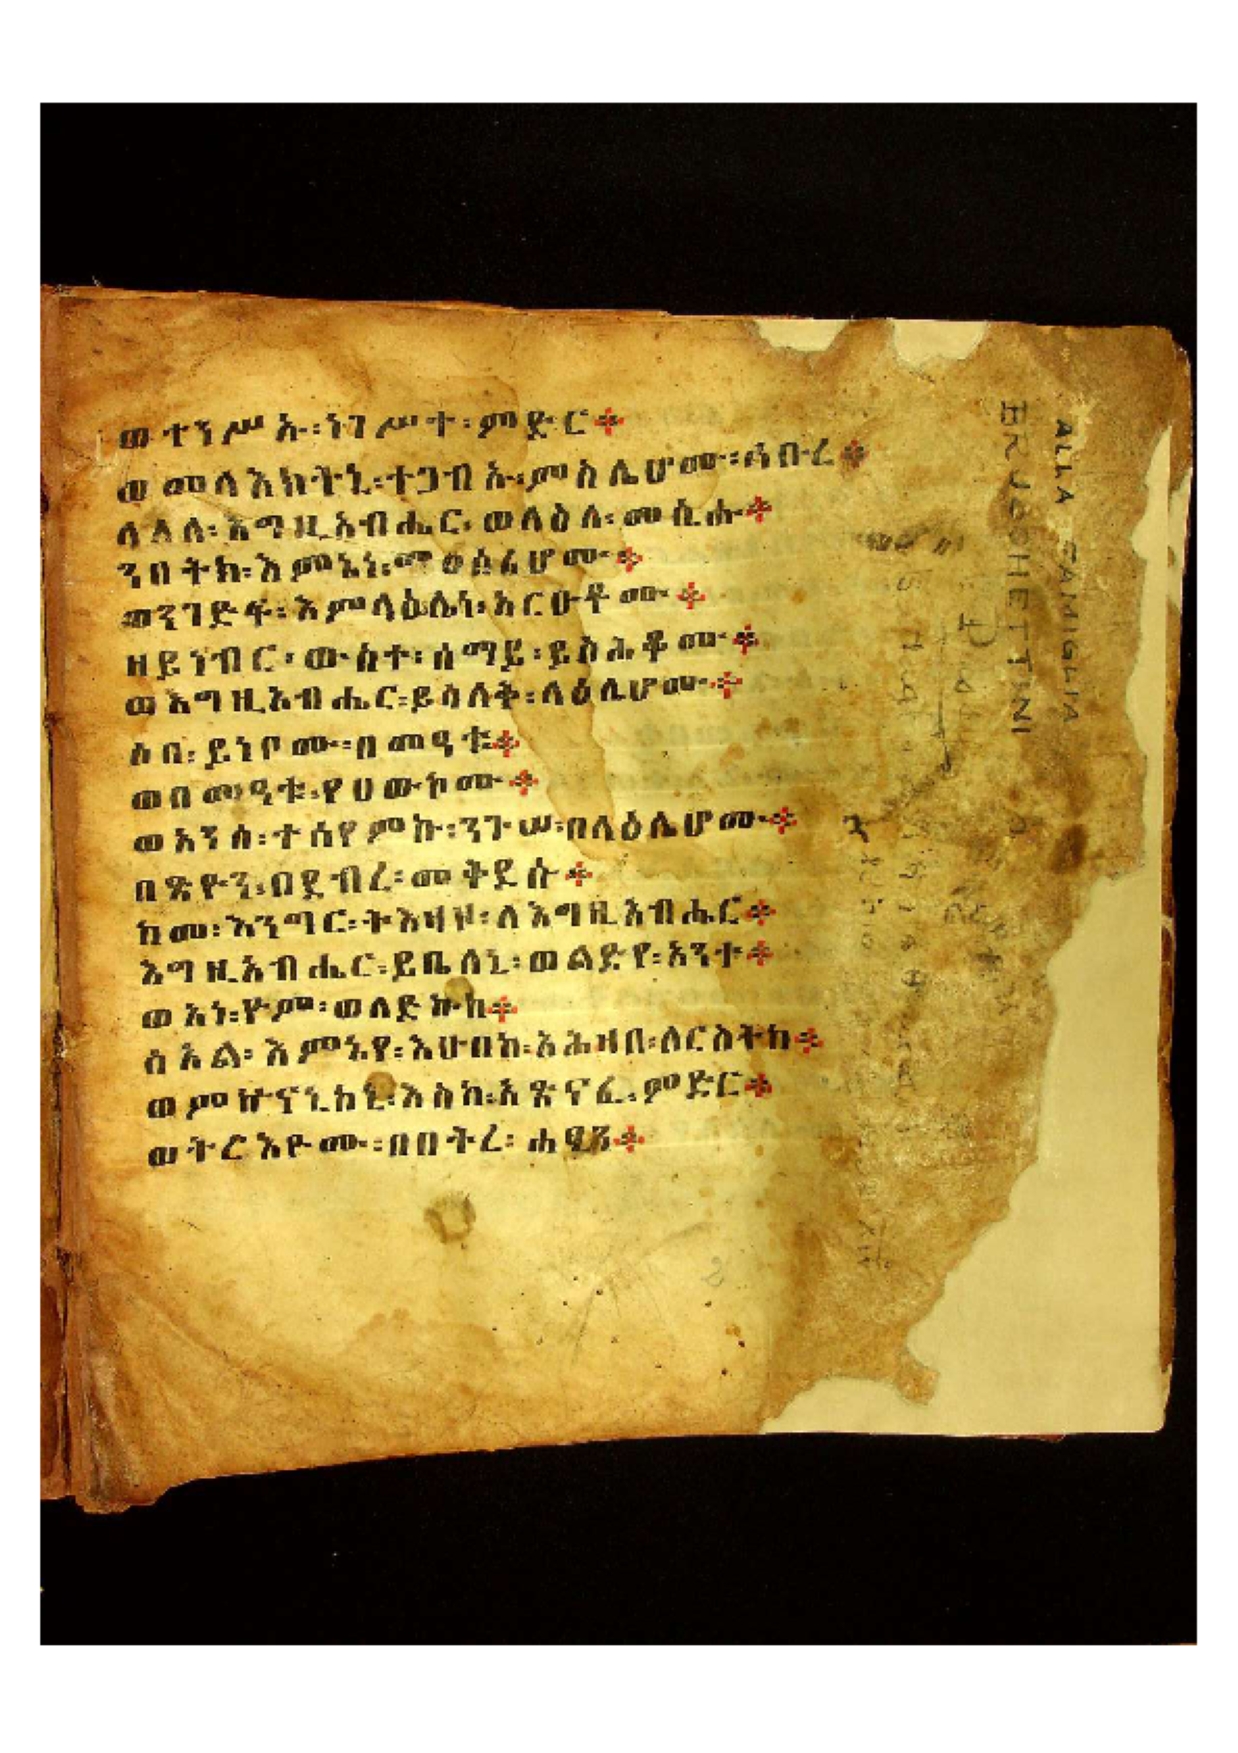 ወተንሥኡ፡ነገሥተ፡ምድር፨
ወመላእክትኒ፡ተጋብኡ፡ምስሌሆሙ፡ኅቡረ፨
ላዕለ፡እግዚአብሔር፡ወላዕለ፡መሲሑ፨
ንበትክ፡እምኔነ፡ማዕሰሪሆሙ፨
ወንገድፍ፡እምላዕሌነ፡አርዑቶሙ፨
ዘይነብር፡ውስተ፡ሰማይ፡ይስሕቆሙ፨
ወእግዚአብሔር፡ይሳለቅ፡ላዕሌሆሙ፨
ሶበ፡ይነቦሙ፡በመዓቱ፨
ወበመዓቱ፡የሀውኮሙ፨
ወአንሰ፡ተሰየምኩ፡ንጉሠ፡በላዕሌሆሙ፨
በጽዮን፡በደብረ፡መቅደሱ፨
ከመ፡እንግር፡ትእዛዞ፡ለእግዚአብሔር፨
እግዚአብሔር፡ይቤለኒ፡ወልድየ፡አንተ፨
ወአነ፡ዮም፡ወለድኩከ፨
ሰአል፡እምኔየ፡እሁበከ፡አሕዛበ፡ለርስትከ፨
ወምኵናኒከኒ፡እስከ፡አጽናፈ፡ምድር፨
ወትርእዮሙ፡በበትረ፡ሐፂን፨
ALLA FAMIGLIA
BRUSCHETTINI